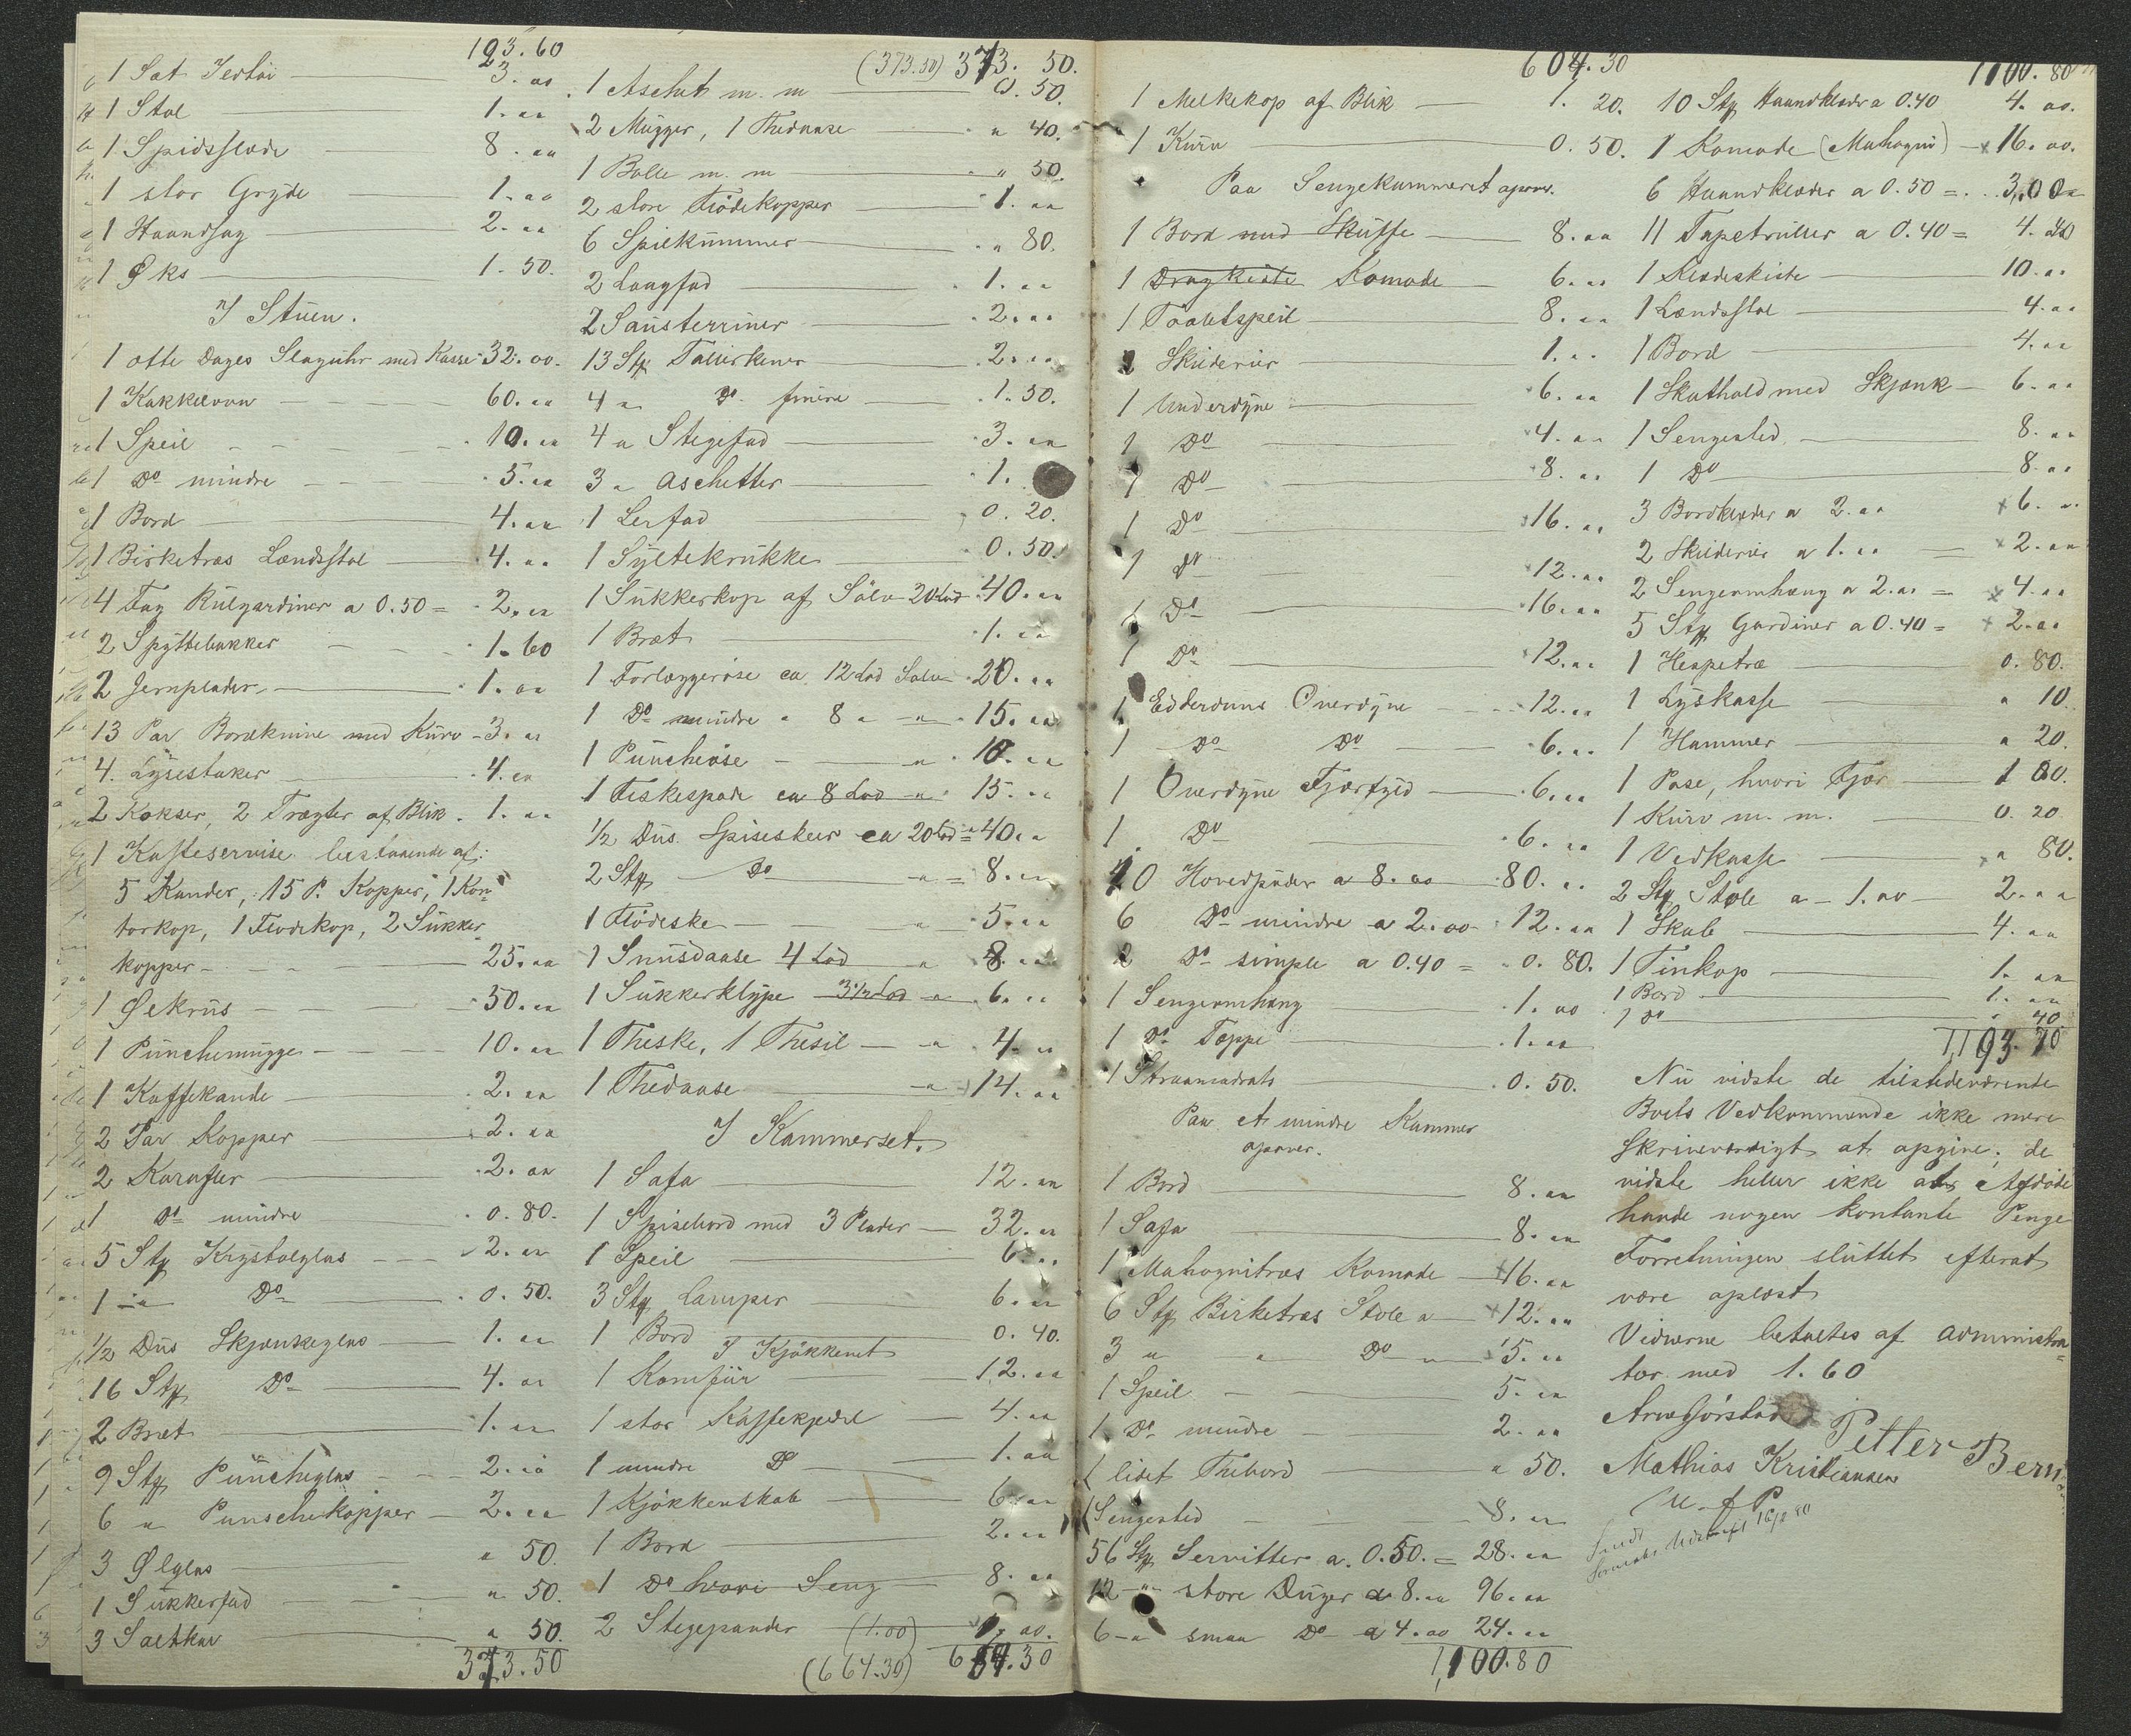 193.60
1 Sæt Jertøi 3. "
1 Stol 1. "
1 Spidsslæde 8. "
1 stor Gryde 1. "
1 Haandsag 2. "
1 Øks 1. 50.
I Stuen.
1 otte Dages Slaguhr med Kasse 32. 00.
1 Kakkelovn 60. "
1 Speil 10. "
1 Do mindre 5. "
1 Bord 4. "
1 Birketræs Lændstol 4. "
4 Fag Rulgardiner a 0.50 = 2. "
2 Spyttebakker 1. 60
2 Jernplader 1. "
13 Par Bordknive med Kurv 3. "
4. Lysestaker 4. "
2 Kokser, 2 Tragter af Blik. 1. "
1 Kaffeservise bestaaende af:
5 Kander, 15 P. Kopper, 1 Kon-
torkop, 1 Flodekop, 2 Sukker
kopper 25. "
1 Ølkrus 50. "
1 Punchemugge 10. "
1 Kaffekande 2. "
2 Par Kopper 2. "
2 Karafler 2. "
1 Do mindre 0. 80.
5 Stk Krystalglas 2. "
1 " Do 0. 50.
1/2 Dus Skjænkeglas 1. "
16 Stk Do 4. "
2 Bræt 1. "
9 Stk Puncheglas 2. "
6 " Punschekopper 2. "
3 Ølglas " 50.
1 Sukkerfad " 50.
3 Saltkar " 50.
373.50
(373.50) 373. 50.
1 Aschet m. m 0. 50.
2 Mugger, 1 Thedaase " 40.
1 Bolle m. m " 50.
2 store Flödekopper 1. "
6 Spilkummer " 80.
2 Langfad 1. "
2 Sausterriner 2. "
13 Stk Tallerkener 2. "
4 " Do finere 1. 50.
4 " Stegefad 3. "
3 " Aschetter 1.
1 Lerfad 0. 20.
1 Syltekrukke 0. 50.
1 Sukkerkop af Sölv 20 Lod 40. "
1 Bræt 1. "
1 Forlæggeröse ca. 12 Lod Sölv 20. "
1 Do mindre " 8 " " 15. "
1 Puncheöse " 10. "
1 Fiskespade ca 8 Lod " 15. "
1/2 Dus. Spiseskeer ca 20 Lod = 40. "
2 Stk Do " = 8. "
1 Flödeske " 5. "
1 Snusdaase 4 Lod " 8. "
1 Sukkerklype 3 1/2 Lod " 6. "
1 Theske, 1 Thesil " 4. "
1 Thedaase " 14. "
I Kammerset.
1 Safa 12. "
1 Spisebord med 3 Plader 32. "
1 Speil 6. "
3 Stk Lamper 6. "
1 Bord 0. 40.
I Kjökkenet
1 Komfur 12. "
1 stor Kaffekjedel 4. "
1 mindre Do 1. "
1 Kjökkenskab 6. "
1 Bord 2. "
1 Do hvori Seng 8. "
2 Stegepander (1.00) 1. 00.
(664.30) 604.30
604.30
1 Melkekop af Blik 1. 20.
1 Kurv 0. 50.
Paa Sengekammeret apover.
1 Bord med Skuffe 8. "
1 Dragkiste Komode 6. "
1 Toaletspeil 8. "
2 Skilderier 1. "
1 Underdyne 6. "
1 Do 4. "
1 Do 8. "
1 Do 16. "
1 Do 12. "
1 Do 16. "
1 Do 12. "
1 Edderduns Overdyne 12. "
1 Do Do 6. "
1 Overdyne Fjærfyld 6. "
1 Do 6. "
10 Hovedpuder a 8. 00 80. "
6 Do mindre a 2. 00 12. "
2 Do simple a 0.40 = 0. 80.
1 Sengeomhæng 1. 00
1 Do Tæppe 1. "
1 Straamadrats 0. 50.
Paa et mindre Kammer
apover.
1 Bord 8. "
1 Safa 8. "
1 Mahognitræs Komode 16. "
6 Stk Birketræs Stole a 12. "
3 " " Do " 5. "
1 Speil 5. "
1 Do mindre 2. "
1 lidet Thebord " 50.
1 Sengested 8. "
56 Stk Servitter a. 0.50. = 28. "
12 " store Duger a 8. " 96. "
6 " smaa Do a 4. 00 24. "
1,100.80
1100. 80
10 Stk Haandklæder a 0.40 4. 00.
1 Komode (Mahogni) 16. 00.
6 Haandklæder a 0.50 = 3,00
11 Tapetruller a 0.40 = 4. 40
1 Klædeskiste 10. "
1 Lændstol 4. "
1 Bord 4. "
1 Skathold med Skjænk 6. "
1 Sengested 8. "
1 Do 8. "
3 Bordklæder a 2. " 6. "
2 Skilderier a 1. " 2. "
2 Sengeomhæng a 2. " = 4. "
5 Stk Gardiner a 0.40 = 2. "
1 Hespetræ 0. 80.
1 Lyskasse " 10.
1 Hammer " 20.
1 Pose, hvori Fjær 1 80.
1 Kurv m. m. 0. 20
1 Vedkasse " 80.
2 Stk Stole a 1. 00 2. "
1 Skab 4. "
1 Tinkop 1. "
1 Bord 1. "
1 Do " 40
1,193. 70
Nu vidste de tilstedeværende
Boets Vedkommende ikke mere
skriveværdigt at apgive; de
vidste heller ikke at Afdöde
havde nogen kontante Penge
Forretningen sluttet efterat
være aplæst
Vidnerne betaltes af Administra=
tor med 1. 60
Arne Sörstad Petter Bern
Mathias Kristiansen
M. f P.